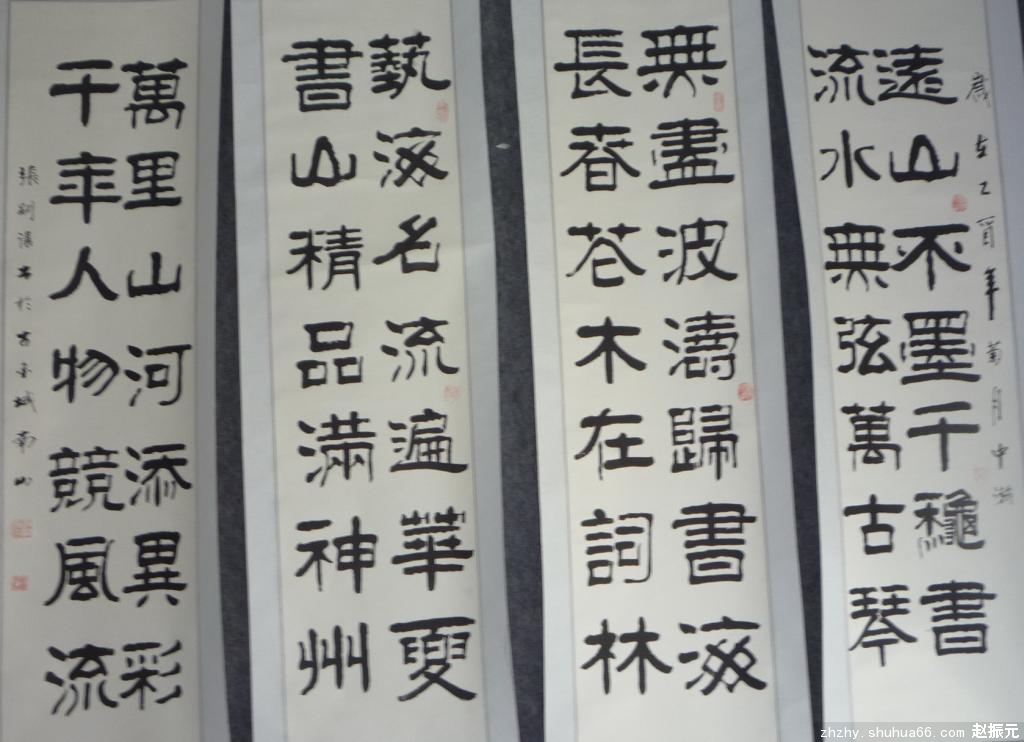 歲在乙酉年菊月中澣
遠山不墨千龝書
流水無弦萬古琴
無盡波濤歸書海
長春花木在詞林
藝海名流遍華夏
書山精品滿神州
萬里山河添異彩
千年人物競風流
書於古 城南
zhzhy.shuhua66.com 赵振元